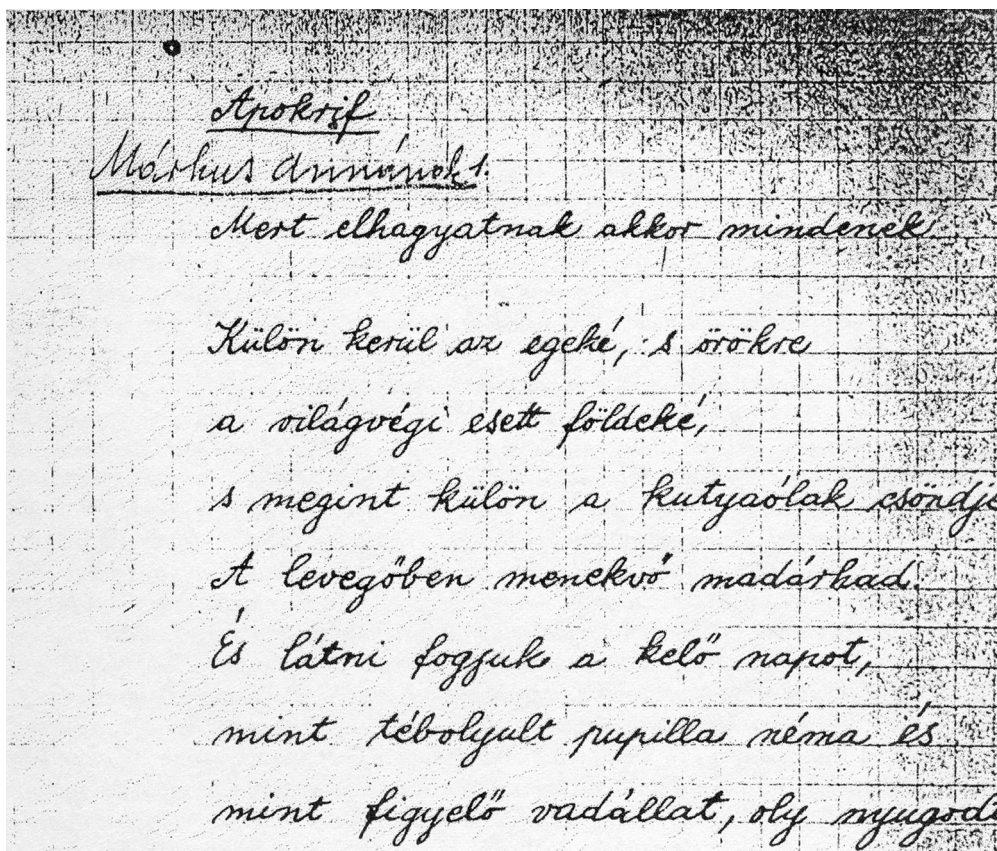 Apokrif
Márkus Annának 1.
Mert elhagyatnak akkor mindenek
Külön kerül az egeké, s örökre
a világvégi esett földeké,
s megint külön a kutyaólak csöndje
A levegőben menekvő madárhad.
És látni fogjuk a kelő napot,
mint tébolyult pupilla néma és
mint figyelő vadállat, oly nyugodt